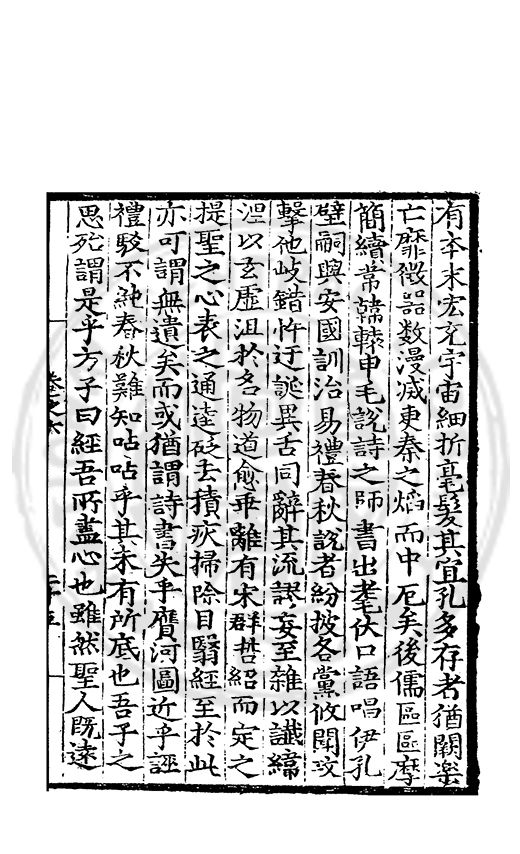 有本末宏充宇宙細折毫髮其宜孔多存者猶闕樂
亡靡徵器数漫滅更秦之焰而中厄矣後儒區區摩
簡續常韓轅申毛說詩之師書出耄伏口語唱伊孔
壁嗣興安國訓治易禮春秋說者紛披各黨攸聞攻
擊他歧錯忤迂誕異舌同辭其流謬妄至雜以讖緯
淫以玄虛沮於名物道愈乖離有宋群哲紹而定之
提聖之心表之通逵砭去積疾掃除目翳經至於此
亦可謂無遺矣而或猶謂詩書失乎贋河圖近乎誣
禮駁不純春秋難知呫呫乎其未有所底也吾子之
思殆謂是乎方子曰經吾所盡心也雖然聖人既遠